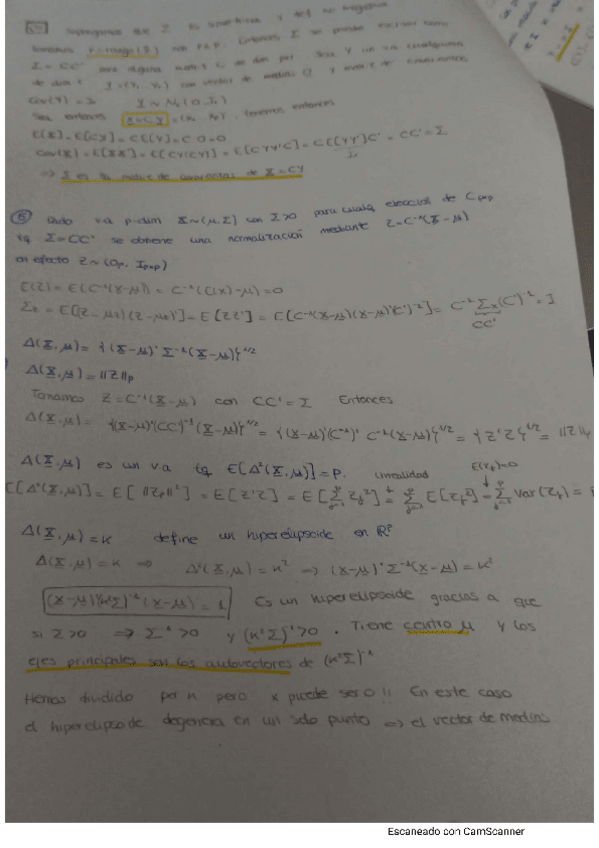 Supongamos que Σ es simétrica y def no negativa
r=rango(Σ) con r≤p. Entonces Σ se puede
Σ = CC' para alguna matriz C de dim p×r. Sea Y un va cualquiera
de dim r Y=(Y₁ Yᵣ) con vector de medias 0 y matriz de covarianzas
Cov(Y) = Iᵣ Y ~ Nᵣ (0, Iᵣ)
Sea entonces X=CY = (X₁ Xₚ)'. Tenemos entonces
E(X) = E[CY] = CE(Y) = C·0=0
Cov(X) = E[XX'] = E[CY(CY)'] = E[CYY'C'] = CE[YY']C' = CC' = Σ
Iᵣ
⇒ Σ es la matriz de covarianzas de X=CY
⑥ Dado va p-dim X~(μ,Σ) con Σ>0 para cualq elección de Cₚₓₚ
tq Σ=CC' se obtiene una normalización mediante Z=C⁻¹(X-μ)
en efecto Z~(0ₚ, Iₚₓₚ)
E(Z) = E(C⁻¹(X-μ)) = C⁻¹(E(X)-μ)=0
Σz = E[(Z-μz)(Z-μz)'] = E[ZZ'] = E[C⁻¹(X-μ)(X-μ)'(C')⁻¹] = C⁻¹Σx(C')⁻¹ = I
CC'
Δ(X,μ) = {(X-μ)'Σ⁻¹(X-μ)}^1/2
Δ(X,μ) = ||Z||ₚ
Tomamos Z=C⁻¹(X-μ) con CC'=Σ Entonces
Δ(X,μ) = {(X-μ)'(CC')⁻¹(X-μ)}^1/2 = {(X-μ)'(C⁻¹)' C⁻¹(X-μ)}^1/2 = {Z'Z}^1/2 = ||Z||ₚ
Δ(X,μ) es un va tq E[Δ²(X,μ)] = p. linealidad E(Zⱼ)=0
E[Δ²(X,μ)] = E[||Zₚ||²] = E[Z'Z] = E[Σ Zⱼ²] = Σ E[Zⱼ²] = Σ Var(Zⱼ) =
Δ(X,μ)=k define un hiperelipsoide en ℝᵖ
Δ(X,μ) = k ⇒ Δ²(X,μ) = k² ⇒ (X-μ)'Σ⁻¹(X-μ) = k²
(X-μ)'(k²Σ)⁻¹(X-μ) = 1 Es un hiperelipsoide gracias a que
si Σ>0 ⇒ Σ⁻¹>0 y (k²Σ)⁻¹>0. Tiene centro μ y los
ejes principales son los autovectores de (k²Σ)⁻¹
Hemos dividido por k pero k puede ser 0 !! En este caso
el hiperelipsoide degenera en un solo punto ⇒ el vector de medias
Escaneado con CamScanner